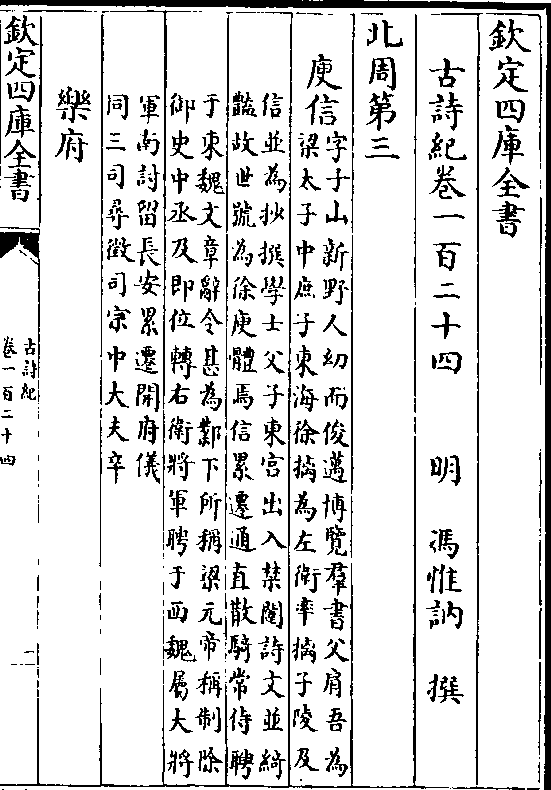 欽定四庫全書
古詩紀卷一百二十四 明 馮惟訥 撰
北周第三
庾信
字子山新野人幼而俊邁博覽羣書父肩吾為
梁太子中庶子東海徐摛為左衛率摛子陵及
信並為抄撰學士父子東宫出入禁闥詩文並綺
豔故世號為徐庾體焉信累遷通直散騎常侍聘
于東魏文章辭令甚為鄴下所稱梁元帝稱制除
御史中丞及即位轉右衛將軍聘于西魏屬大將
軍南討留長安累遷開府儀
同三司尋徵司宗中大夫卒
樂府
欽定四庫全書
古詩紀
卷一百二十四
一